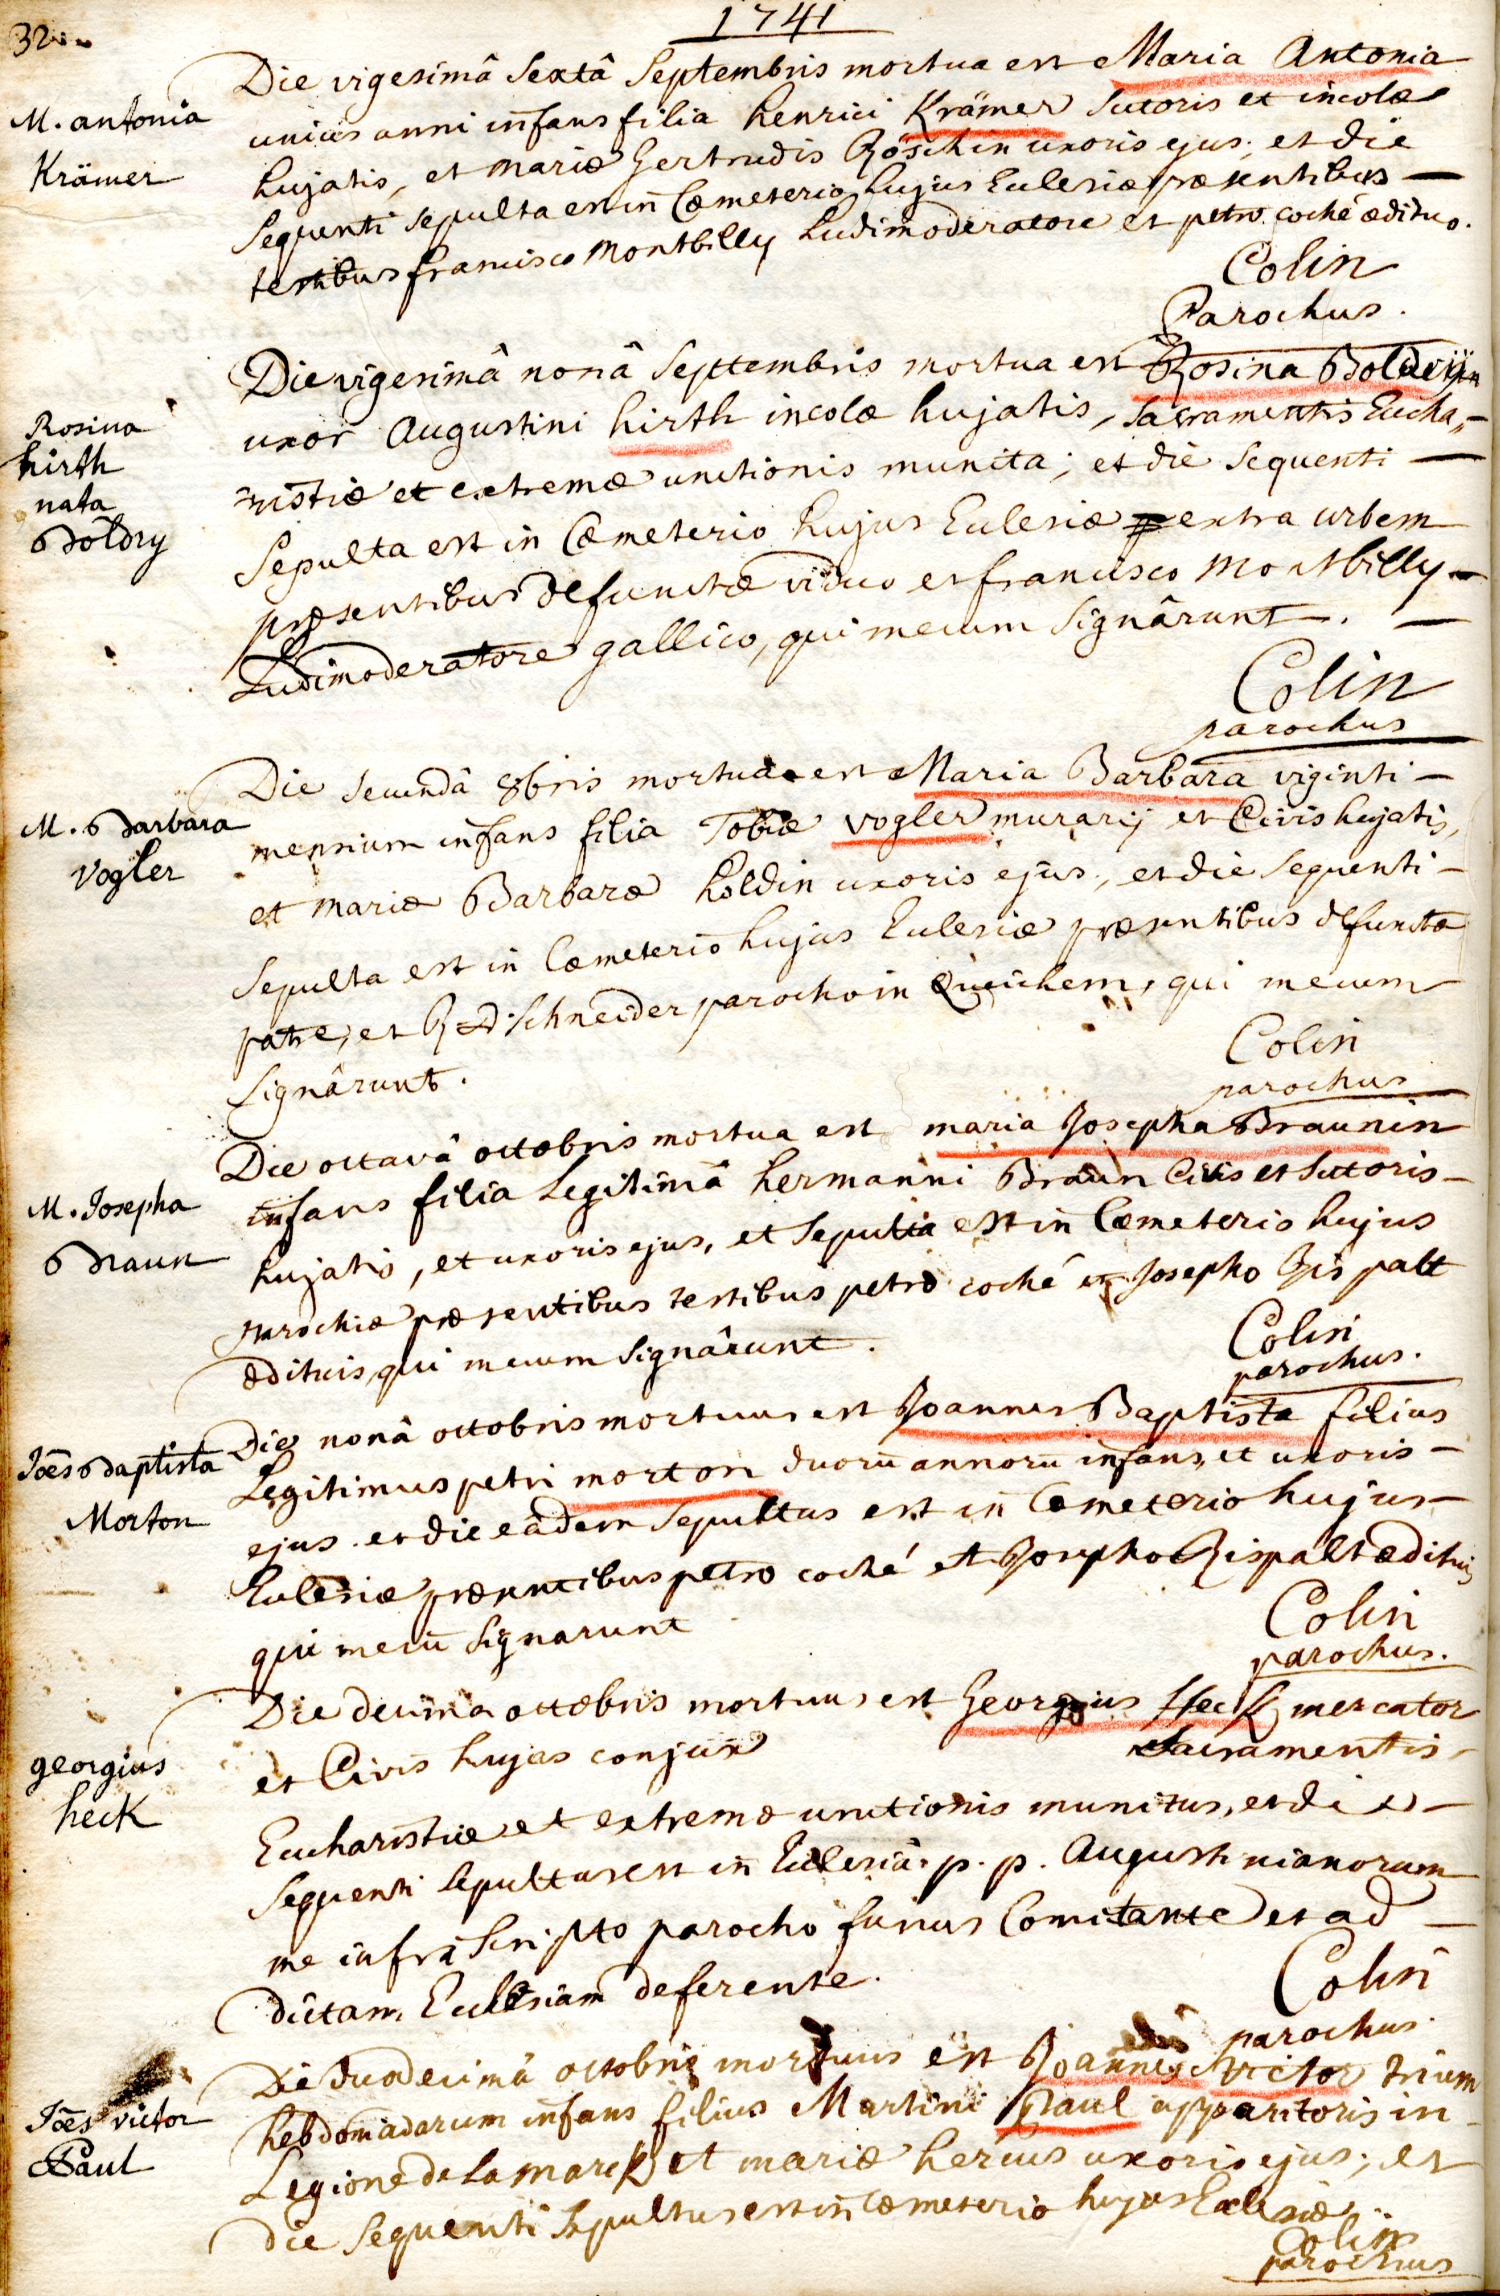 32
1741
M. antonia
Krämer
Die vigesimâ sextâ Septembris mortua est Maria Antonia
unius anni infans filia henrici Krämer sutoris et incolæ
hujatis, et mariæ Gertrudis Röschin uxoris ejus; et die
sequenti sepulta est in Cœmeterio hujus Eclesiæ præsentibus —
testibus francisco Montbilly Ludimoderatore et petro coché ædituo.
Colin
Parochus.
Rosina
hirth
nata
Boldry
Die vigesimâ nonâ Septembris mortua est Rosina
uxor Augustini hirth incolæ hujatis, sacramentis Eucha,,
ristiæ et extremæ unctionis munita; et die sequenti —
Sepulta est in Cœmeterio hujus Eclesiæ extra urbem
præsentibus defunctæ viduo et francisco Montbilly —
Ludimoderatore gallico, qui mecum signârunt. —
Colin
parochus
M. Barbara
Vogler
Die secundâ 8bris mortua est Maria Barbara viginti —
mensium infans filia Tobiæ vogler murarij et Civis hujatis,
et mariæ Barbaræ holdin uxoris ejus, et die sequenti —
Sepulta est in Cœmeterio hujus Eclesiæ præsentibus defunctæ
patre, et R. D. Schneider parocho in Queichem, qui mecum
signârunt.
Colin
parochus
M. Josepha
Braun
Die octavâ octobris mortua est maria Josepha Braunin
infans filia Legitimâ hermanni Braun Civis et sutoris —
hujatis, et uxoris ejus, et sepulta est in Cœmeteris hujus
parochiæ præsentibus testibus petro coché et Josepho Rispalt
ædituis, qui mecum signârunt.
Colin
parochus.
Joês Baptista
Morton
Die nonâ octobris mortuus est Joannes Baptista filius
Legitimus petri morton duorū annorū infans, et uxoris —
ejus. et die eâdem sepultus est in Cœmeterio hujus —
Eclesiæ præsentibus petro coché et Josepho Rispalt ædituis
qui mecū signarunt
Colin
parochus.
georgius
heck
Die decima octobris mortuus est Georgius Heck mercator
et Civis hujas conjux sacramentis,
Eucharistiæ et extremæ unctionis munitus, et die —
sequenti sepultus est in Eclesiâ p. p. Augustinianorum
me infrà scripto parocho funus Comitante et ad —
dictam Eclesiam deferente.
Colin
parochus.
Joês victor
Paul
Die duodecimâ octobris mortuus est Joannes Victor trium
hebdomadarum infans filius Martini Paul apparitoris in
Legione de la marck et mariæ hercus uxoris ejus; et
die sequenti sepultus est in Cœmeterio hujus Eclesiæ.
Colin
parochus